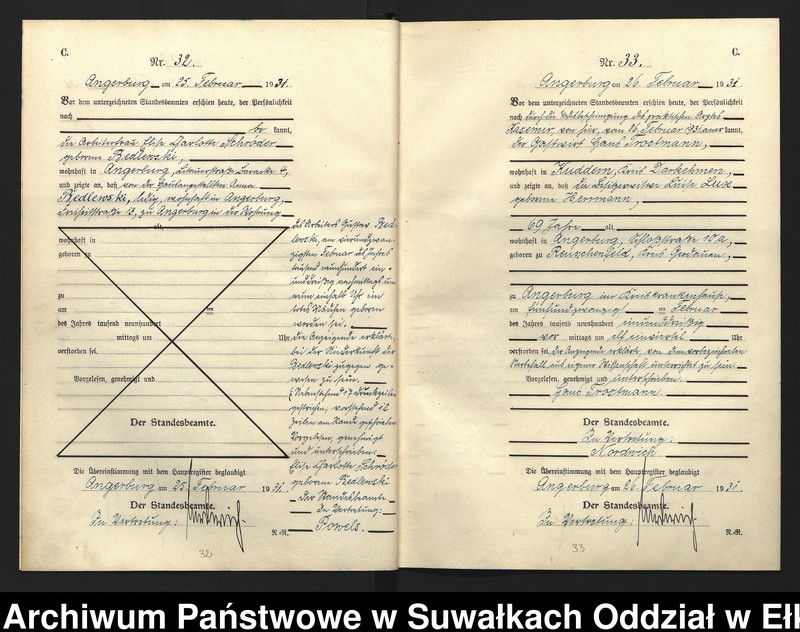 C.
Nr. 32.
Angerburg am 25. Februar 1931.
Vor dem unterzeichneten Standesbeamten erschien heute, der Persönlichkeit
nach
be kannt,
die Arbeiterfrau Elise Charlotte Schröder
geborene Redlewski,
wohnhaft in Angerburg, Litauerstraße Baracke 4,
und zeigte an, daß von der Hausangestellten Anna
Redlewski, ledig, wohnhaft in Angerburg,
13, zu Angerburg in der Wohnung
alt,
wohnhaft in
geboren zu
zu
am ten
des Jahres tausend neunhundert
mittags um Uhr
verstorben sei.
Vorgelesen, genehmigt und
Der Standesbeamte.
des Arbeiters Gustav Red-
lewski, am fünfundzwan-
zigsten Februar des Jahres
tausend neunhundert ein-
unddreißig nachmittags um
einhalb Uhr ein
totes Mädchen geboren
worden sei.
Die Anzeigende erklärte,
bei der Niederkunft der
Redlewski zugegen ge-
wesen zu sein.
Druckzeilen
gestrichen, vorstehend 12
Zeilen am Rande geschrieben
Vorgelesen, genehmigt
und unterschrieben:
Elise Charlotte Schröder
geborene Redlewski
Der Standesbeamte
In Vertretung:
Powels.
Die Übereinstimmung mit dem Hauptregister beglaubigt
Angerburg am 25. Februar 1931.
Der Standesbeamte.
In Vertretung:
R.-R.
32
C.
Nr. 33.
Angerburg am 26. Februar 1931
Vor dem unterzeichneten Standesbeamten erschien heute, der Persönlichkeit
nach durch die Bescheinigung des praktischen Arztes
Kasemir, von hier, vom 26. Februar 1931 aner kannt,
der Gastwirt Hans Trostmann,
wohnhaft in Kuddem, Kreis Darkehmen,
und zeigte an, daß die Besitzerwitwe Luise
geborene Herrmann,
69 Jahre alt,
wohnhaft in Angerburg, Schloßstraße 10a,
geboren zu Reuschenfeld, Kreis Gerdauen,
zu Angerburg im Kreiskrankenhause,
am fünfundzwanzig ten Februar
des Jahres tausend neunhundert einunddreißig
vor mittags um elf einviertel Uhr
verstorben sei. Der Anzeigende erklärte, von dem vorbezeichneten
Sterbefall aus eigener Wissenschaft unterrichtet zu sein.
Vorgelesen, genehmigt und unterschrieben.
Hans Trostmann.
Der Standesbeamte.
In Vertretung:
Die Übereinstimmung mit dem Hauptregister beglaubigt
Angerburg am 26. Februar 1931
Der Standesbeamte.
In Vertretung:
R.-R.
33
Archiwum Państwowe w Suwałkach Oddział w Eł